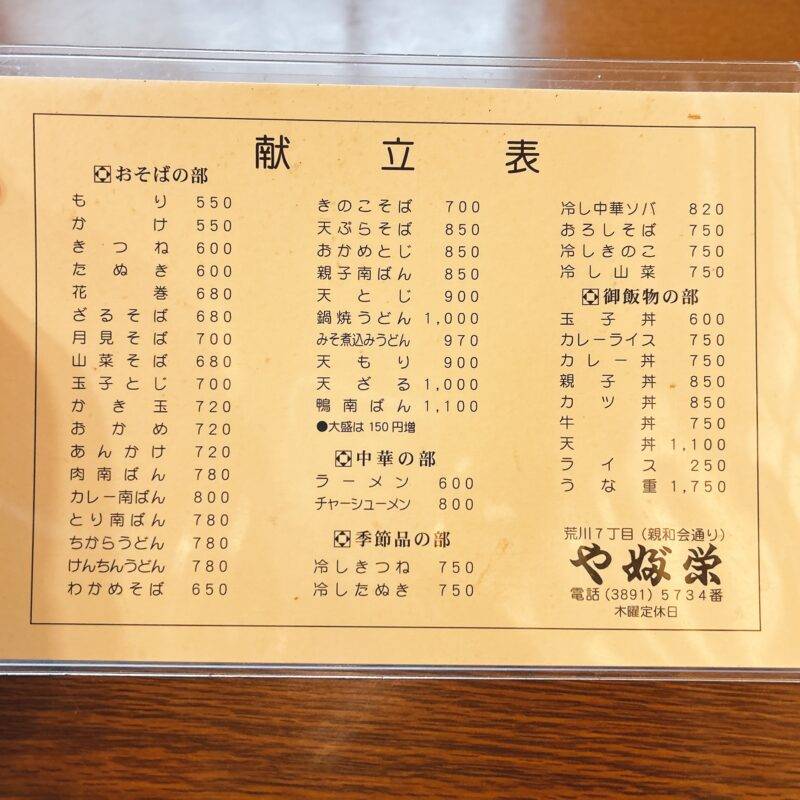 献立表
おそばの部
もり 550
かけ 550
きつね 600
たぬき 600
花巻 680
ざるそば 680
月見そば 700
山菜そば 680
玉子とじ 700
かき玉 720
おかめ 720
あんかけ 720
肉南ばん 780
カレー南ばん 800
とり南ばん 780
ちからうどん 780
けんちんうどん 780
わかめそば 650
きのこそば 700
天ぷらそば 850
おかめとじ 850
親子南ばん 850
天とじ 900
鍋焼うどん 1,000
みそ煮込みうどん 970
天もり 900
天ざる 1,000
鴨南ばん 1,100
●大盛は150円増
中華の部
ラーメン 600
チャーシューメン 800
季節品の部
冷しきつね 750
冷したぬき 750
冷し中華ソバ 820
おろしそば 750
冷しきのこ 750
冷し山菜 750
御飯物の部
玉子丼 600
カレーライス 750
カレー丼 750
親子丼 850
カツ丼 850
牛丼 750
天丼 1,100
ライス 250
うな重 1,750
荒川7丁目(親和会通り)
や栄
電話(3891)5734番
木曜定休日